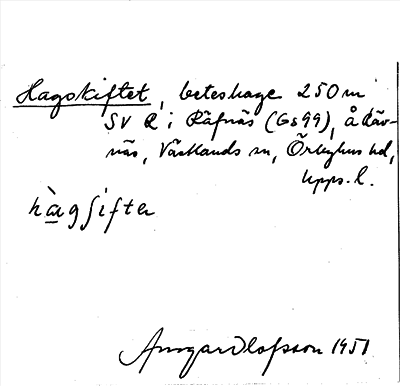 Hagskiftet, beteshage 250 m
SV R i Räfnäs (Gs 99), Å däv-
näs, Västlands sn, Örbyhus hd,
Upps. l.
hàgʃifter
Ansgar Olofsson 1951